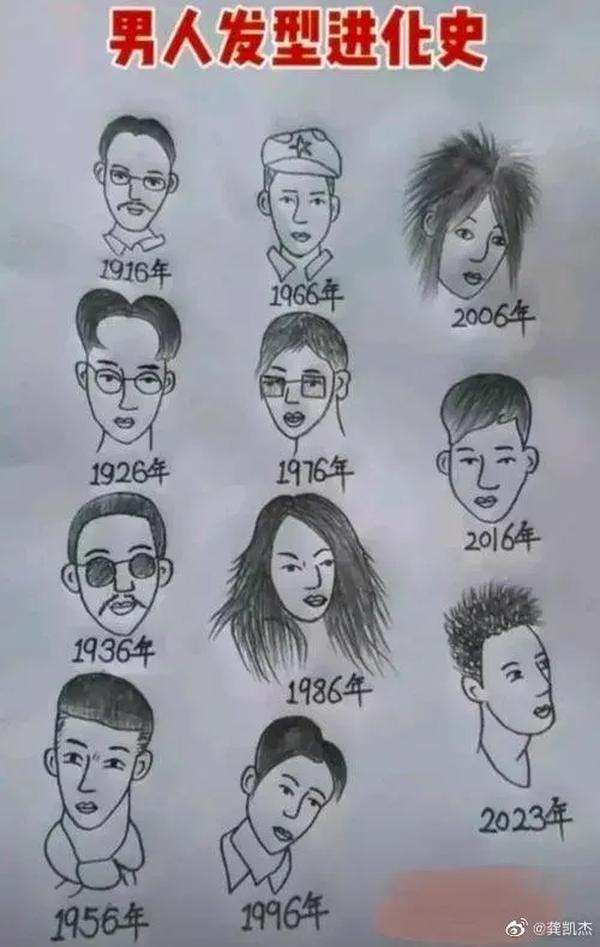 男人发型进化史
1916年
1926年
1936年
1956年
1966年
1976年
1986年
1996年
2006年
2016年
2023年
@龚凯杰